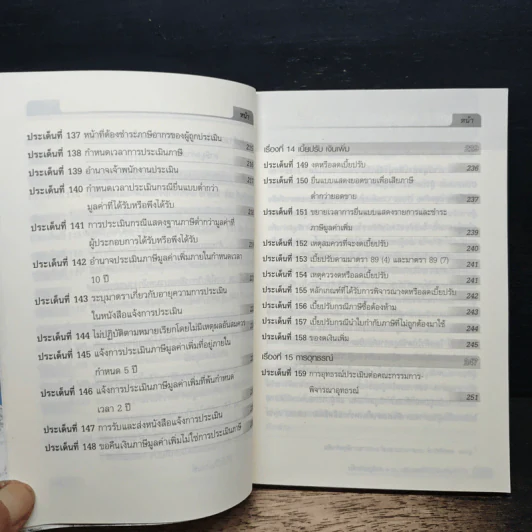 หน้า
ประเด็นที่ 137 หน้าที่ต้องชำระภาษีอากรของผู้ถูกประเมิน
ประเด็นที่ 138 กำหนดเวลาการประเมินภาษี
ประเด็นที่ 139 อำนาจเจ้าพนักงานประเมิน
ประเด็นที่ 140 กำหนดเวลาประเมินกรณียื่นแบบต่ำกว่า
มูลค่าที่ได้รับหรือพึงได้รับ
ประเด็นที่ 141 การประเมินกรณีแสดงฐานภาษีต่ำกว่ามูลค่าที่
ผู้ประกอบการได้รับหรือพึงได้รับ
ประเด็นที่ 142 อำนาจประเมินภาษีมูลค่าเพิ่มภายในกำหนดเวลา
10 ปี
ประเด็นที่ 143 ระบุมาตราเกี่ยวกับอายุความการประเมิน
ในหนังสือแจ้งการประเมิน
ประเด็นที่ 144 ไม่ปฏิบัติตามหมายเรียกโดยไม่มีเหตุผลอันสมควร
ประเด็นที่ 145 แจ้งการประเมินภาษีมูลค่าเพิ่มที่อยู่ภายใน
กำหนด 5 ปี
ประเด็นที่ 146 แจ้งการประเมินภาษีมูลค่าเพิ่มที่พ้นกำหนด
เวลา 2 ปี
ประเด็นที่ 147 การรับและส่งหนังสือแจ้งการประเมิน
ประเด็นที่ 148 ขอคืนเงินภาษีมูลค่าเพิ่มไม่ใช่การประเมินภาษี
หน้า
เรื่องที่ 14 เบี้ยปรับ เงินเพิ่ม
ประเด็นที่ 149 งดหรือลดเบี้ยปรับ 236
ประเด็นที่ 150 ยื่นแบบแสดงยอดขายเพื่อเสียภาษี
ต่ำกว่ายอดขาย 237
ประเด็นที่ 151 ขยายเวลาการยื่นแบบแสดงรายการและชำระ
ภาษีมูลค่าเพิ่ม 239
ประเด็นที่ 152 เหตุสมควรที่จะงดเบี้ยปรับ 240
ประเด็นที่ 153 เบี้ยปรับตามมาตรา 89 (4) และมาตรา 89 (7) 240
ประเด็นที่ 154 เหตุควรงดหรือลดเบี้ยปรับ 241
ประเด็นที่ 155 หลักเกณฑ์ที่ได้รับการพิจารณางดหรือลดเบี้ยปรับ 242
ประเด็นที่ 156 เบี้ยปรับกรณีภาษีซื้อต้องห้าม 243
ประเด็นที่ 157 เบี้ยปรับกรณีนำใบกำกับภาษีที่ไม่ถูกต้องมาใช้ 244
ประเด็นที่ 158 ของดเงินเพิ่ม 245
เรื่องที่ 15 การอุทธรณ์
ประเด็นที่ 159 การอุทธรณ์ประเมินต่อคณะกรรมการ-
พิจารณาอุทธรณ์ 251